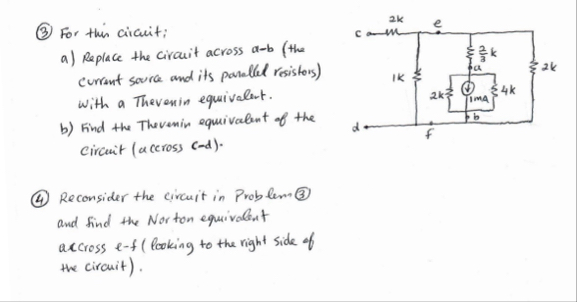 ③ For this circuit;
a) Replace the circuit across a-b (the
current source and its parallel resistors)
with a Thevenin equivalent.
b) Find the Thevenin equivalent of the
circuit (accross c-d).
④ Reconsider the circuit in Problem ③
and find the Norton equivalent
accross e-f (looking to the right side of
the circuit).
2k
e
c
2/3 k
a
1k
2k
2k
1mA
4k
b
d
f